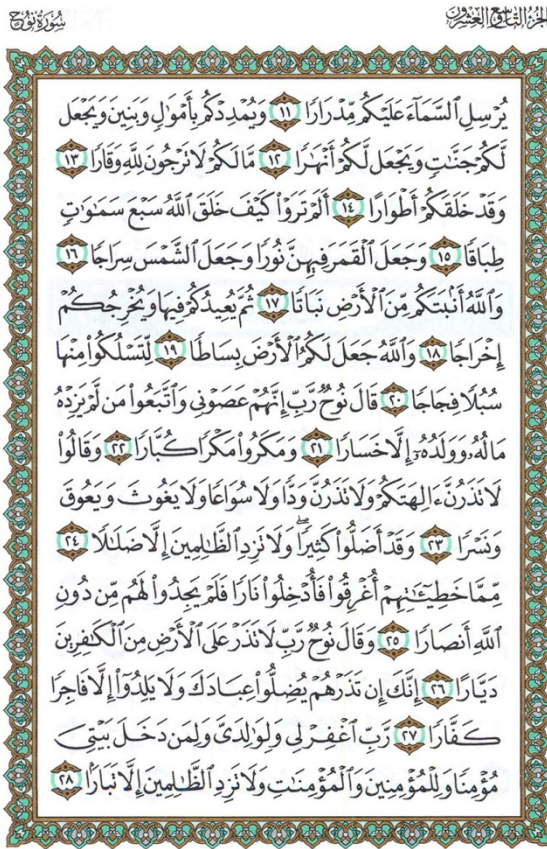 الجزء التاسع والعشرون
سورة نوح
يُرْسِلِ ٱلسَّمَآءَ عَلَيْكُم مِّدْرَارًا ١١ وَيُمْدِدْكُم بِأَمْوَٰلٍ وَبَنِينَ وَيَجْعَل
لَّكُمْ جَنَّٰتٍ وَيَجْعَل لَّكُمْ أَنْهَٰرًا ١٢ مَّا لَكُمْ لَا تَرْجُونَ لِلَّهِ وَقَارًا ١٣
وَقَدْ خَلَقَكُمْ أَطْوَارًا ١٤ أَلَمْ تَرَوْا۟ كَيْفَ خَلَقَ ٱللَّهُ سَبْعَ سَمَٰوَٰتٍ
طِبَاقًا ١٥ وَجَعَلَ ٱلْقَمَرَ فِيهِنَّ نُورًا وَجَعَلَ ٱلشَّمْسَ سِرَاجًا ١٦
وَٱللَّهُ أَنۢبَتَكُم مِّنَ ٱلْأَرْضِ نَبَاتًا ١٧ ثُمَّ يُعِيدُكُمْ فِيهَا وَيُخْرِجُكُمْ
إِخْرَاجًا ١٨ وَٱللَّهُ جَعَلَ لَكُمُ ٱلْأَرْضَ بِسَاطًا ١٩ لِّتَسْلُكُوا۟ مِنْهَا
سُبُلًا فِجَاجًا ٢٠ قَالَ نُوحٌ رَّبِّ إِنَّهُمْ عَصَوْنِى وَٱتَّبَعُوا۟ مَن لَّمْ يَزِدْهُ
مَالُهُۥ وَوَلَدُهُۥٓ إِلَّا خَسَارًا ٢١ وَمَكَرُوا۟ مَكْرًا كُبَّارًا ٢٢ وَقَالُوا۟
لَا تَذَرُنَّ ءَالِهَتَكُمْ وَلَا تَذَرُنَّ وَدًّا وَلَا سُوَاعًا وَلَا يَغُوثَ وَيَعُوقَ
وَنَسْرًا ٢٣ وَقَدْ أَضَلُّوا۟ كَثِيرًا ۖ وَلَا تَزِدِ ٱلظَّٰلِمِينَ إِلَّا ضَلَٰلًا ٢٤
مِّمَّا خَطِيٓـَٰٔتِهِمْ أُغْرِقُوا۟ فَأُدْخِلُوا۟ نَارًا فَلَمْ يَجِدُوا۟ لَهُم مِّن دُونِ
ٱللَّهِ أَنصَارًا ٢٥ وَقَالَ نُوحٌ رَّبِّ لَا تَذَرْ عَلَى ٱلْأَرْضِ مِنَ ٱلْكَٰفِرِينَ
دَيَّارًا ٢٦ إِنَّكَ إِن تَذَرْهُمْ يُضِلُّوا۟ عِبَادَكَ وَلَا يَلِدُوٓا۟ إِلَّا فَاجِرًا
كَفَّارًا ٢٧ رَّبِّ ٱغْفِرْ لِى وَلِوَٰلِدَىَّ وَلِمَن دَخَلَ بَيْتِىَ
مُؤْمِنًا وَلِلْمُؤْمِنِينَ وَٱلْمُؤْمِنَٰتِ وَلَا تَزِدِ ٱلظَّٰلِمِينَ إِلَّا تَبَارًۢا ٢٨